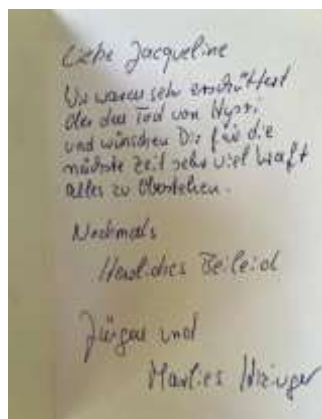 Liebe Jacqueline
Wir waren sehr erschüttert
über das Tod von
und wünschen Dir für die
nächste Zeit sehr viel Kraft
alles zu überstehen.
Nochmals
Herzliches Beileid
Jürgen und
Marlies